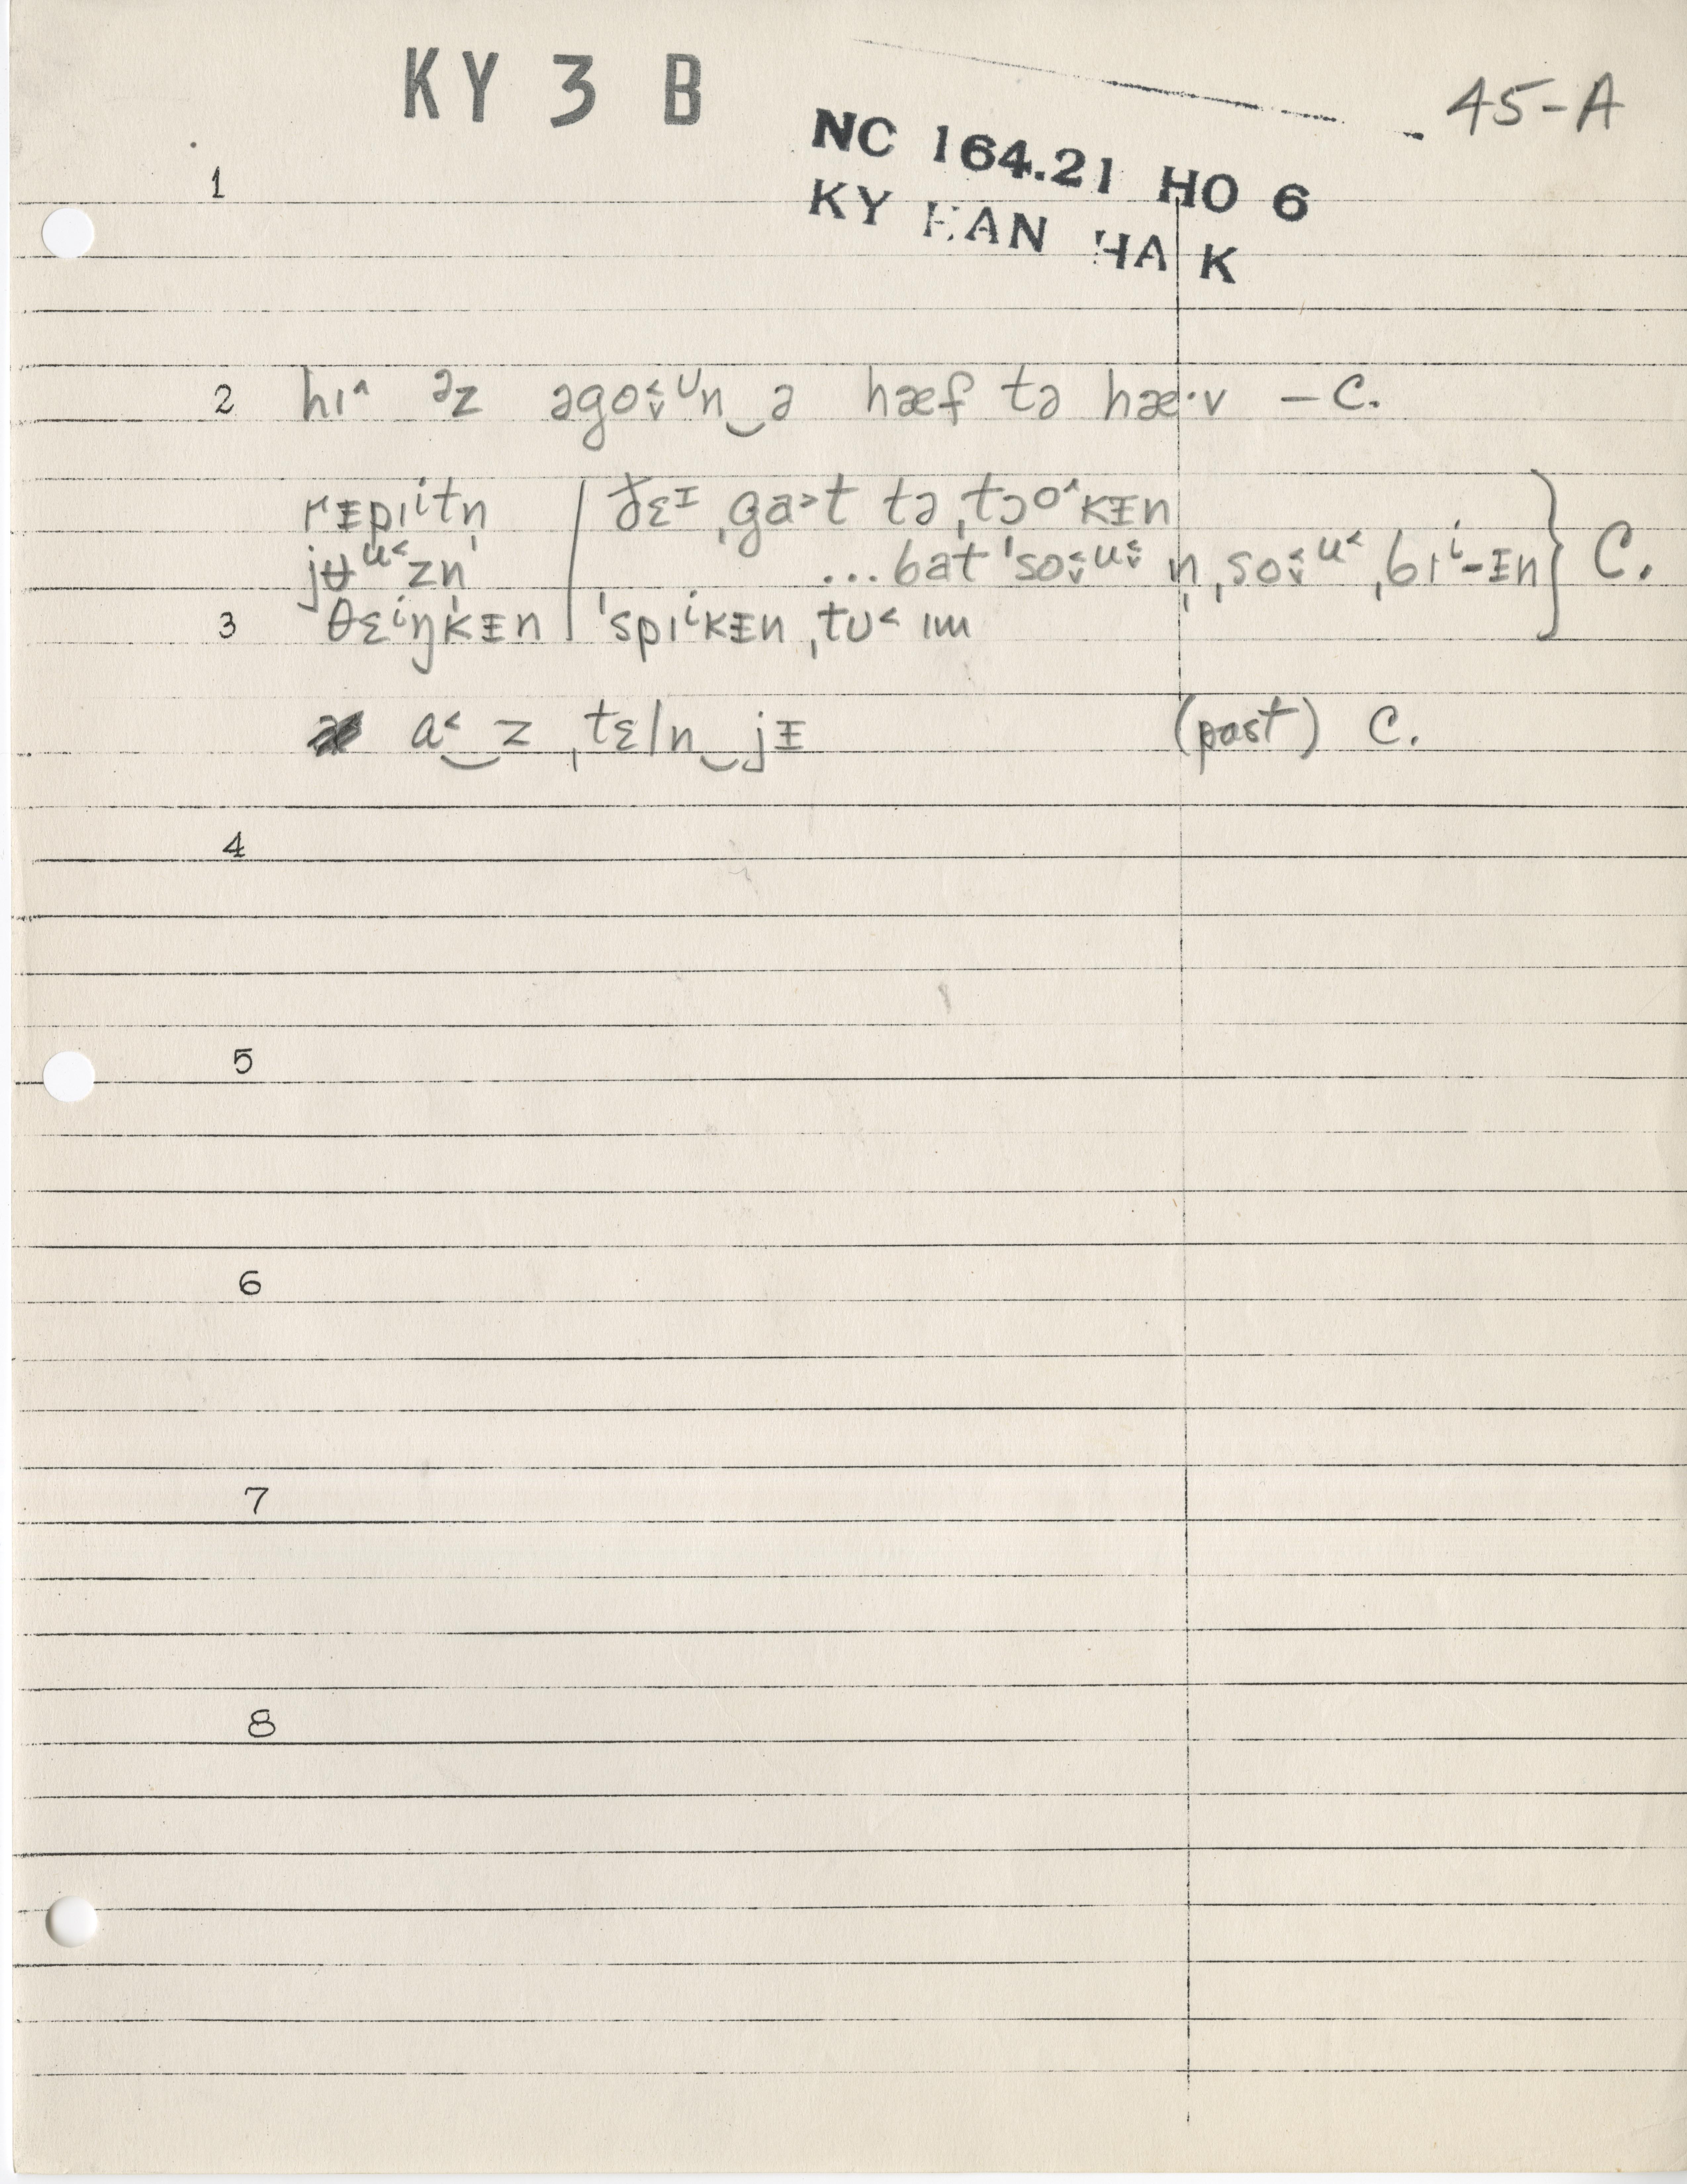 KY 3 B
45-A
NC 164.21 HO 6
KY HAN HA K
1
2 hɪ˄ ᵊz əgo˂˅ᶷn‿ə hæf tə hæ·v – C.
rᵻpɪⁱtn̩ | ðɛᶦ ˌga˃t tə ˌtɔo˄kᵻn
jʉᵘ˂zn̩ ...bat ˈso˂˅ᵘ˂˅ n̩ ˌso˂˅ᵘ˂ ˌbɪⁱ-ᵻn } C.
3 θɛⁱŋkᵻn | ˈspɪⁱkᵻn ˌtʊ˂ ɪm
a˂‿z ˌtɛln‿jᵻ (past) C.
4
5
6
7
8